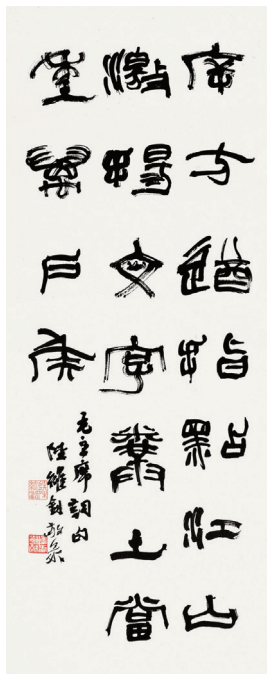 斥方遒指點江山
激揚文字糞土當
年萬戶侯
毛主席詞句
陸維釗敬录